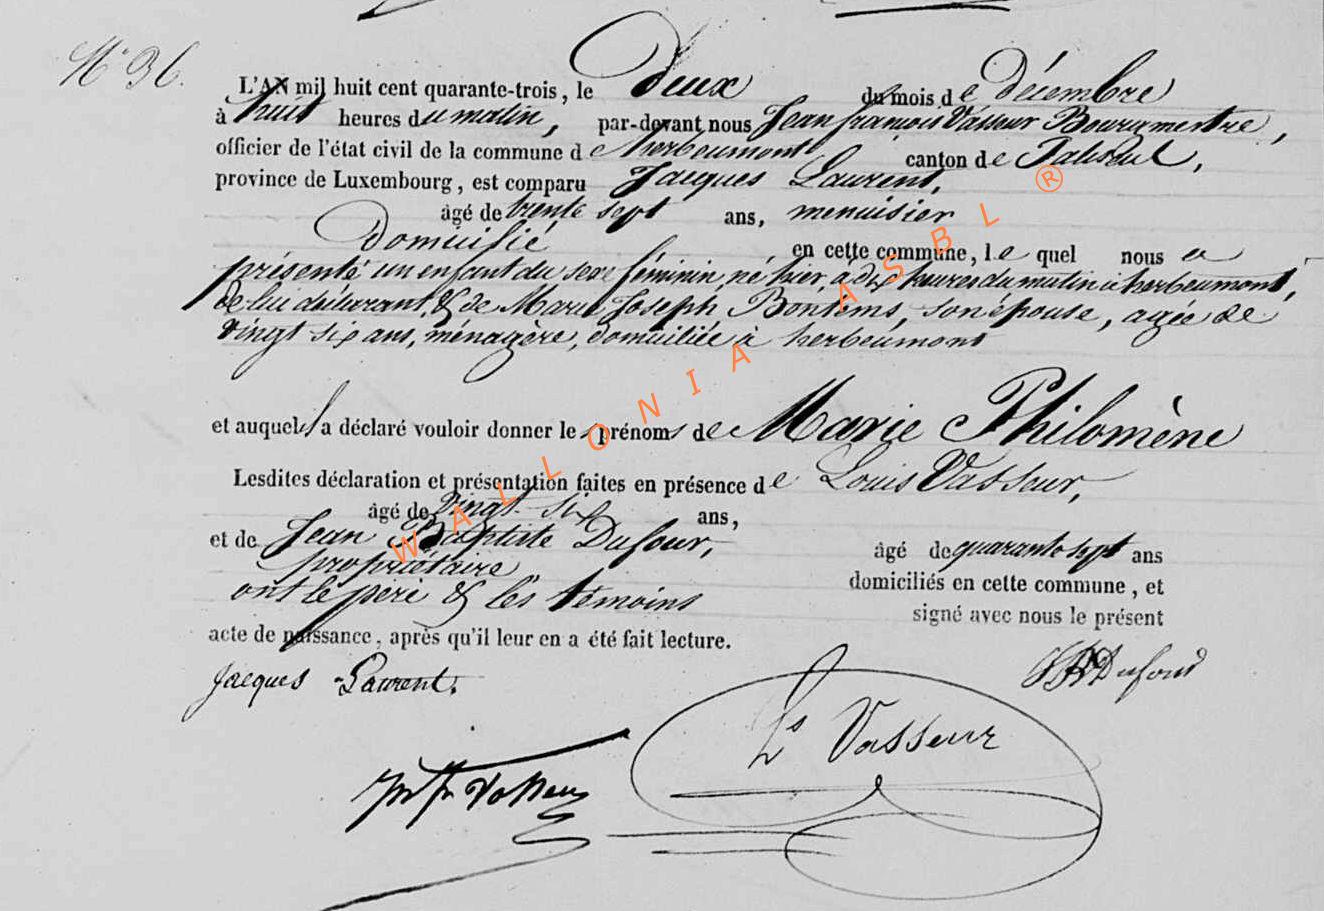 N° 36.
L'AN mil huit cent quarante-trois, le deux du mois de décembre
à huit heures du matin, par-devant nous Jean françois Vasseur Bourgmestre,
officier de l'état civil de la commune de herbeumont canton de Paliseul,
province de Luxembourg, est comparu Jacques Laurent,
âgé de trente sept ans, menuisier
domicilié en cette commune, le quel nous a
présenté un enfant du sexe féminin, né hier, à dix heures du matin à herbeumont,
de lui déclarant, & de Marie Joseph Bontems, son épouse, agée de
vingt six ans, ménagère, domiciliée à herbeumont
et auquel il a déclaré vouloir donner les prénoms de Marie Philomène
Lesdites déclaration et présentation faites en présence de Louis Vasseur,
âgé de vingt six ans,
et de Jean Baptiste Dufour, âgé de quarante sept ans
propriétaire domiciliés en cette commune, et
ont le père & les témoins signé avec nous le présent
acte de naissance, après qu'il leur en a été fait lecture.
Jacques Laurent. Dufour
Ls Vasseur
Vasseur
WALLONIA ASBL ®